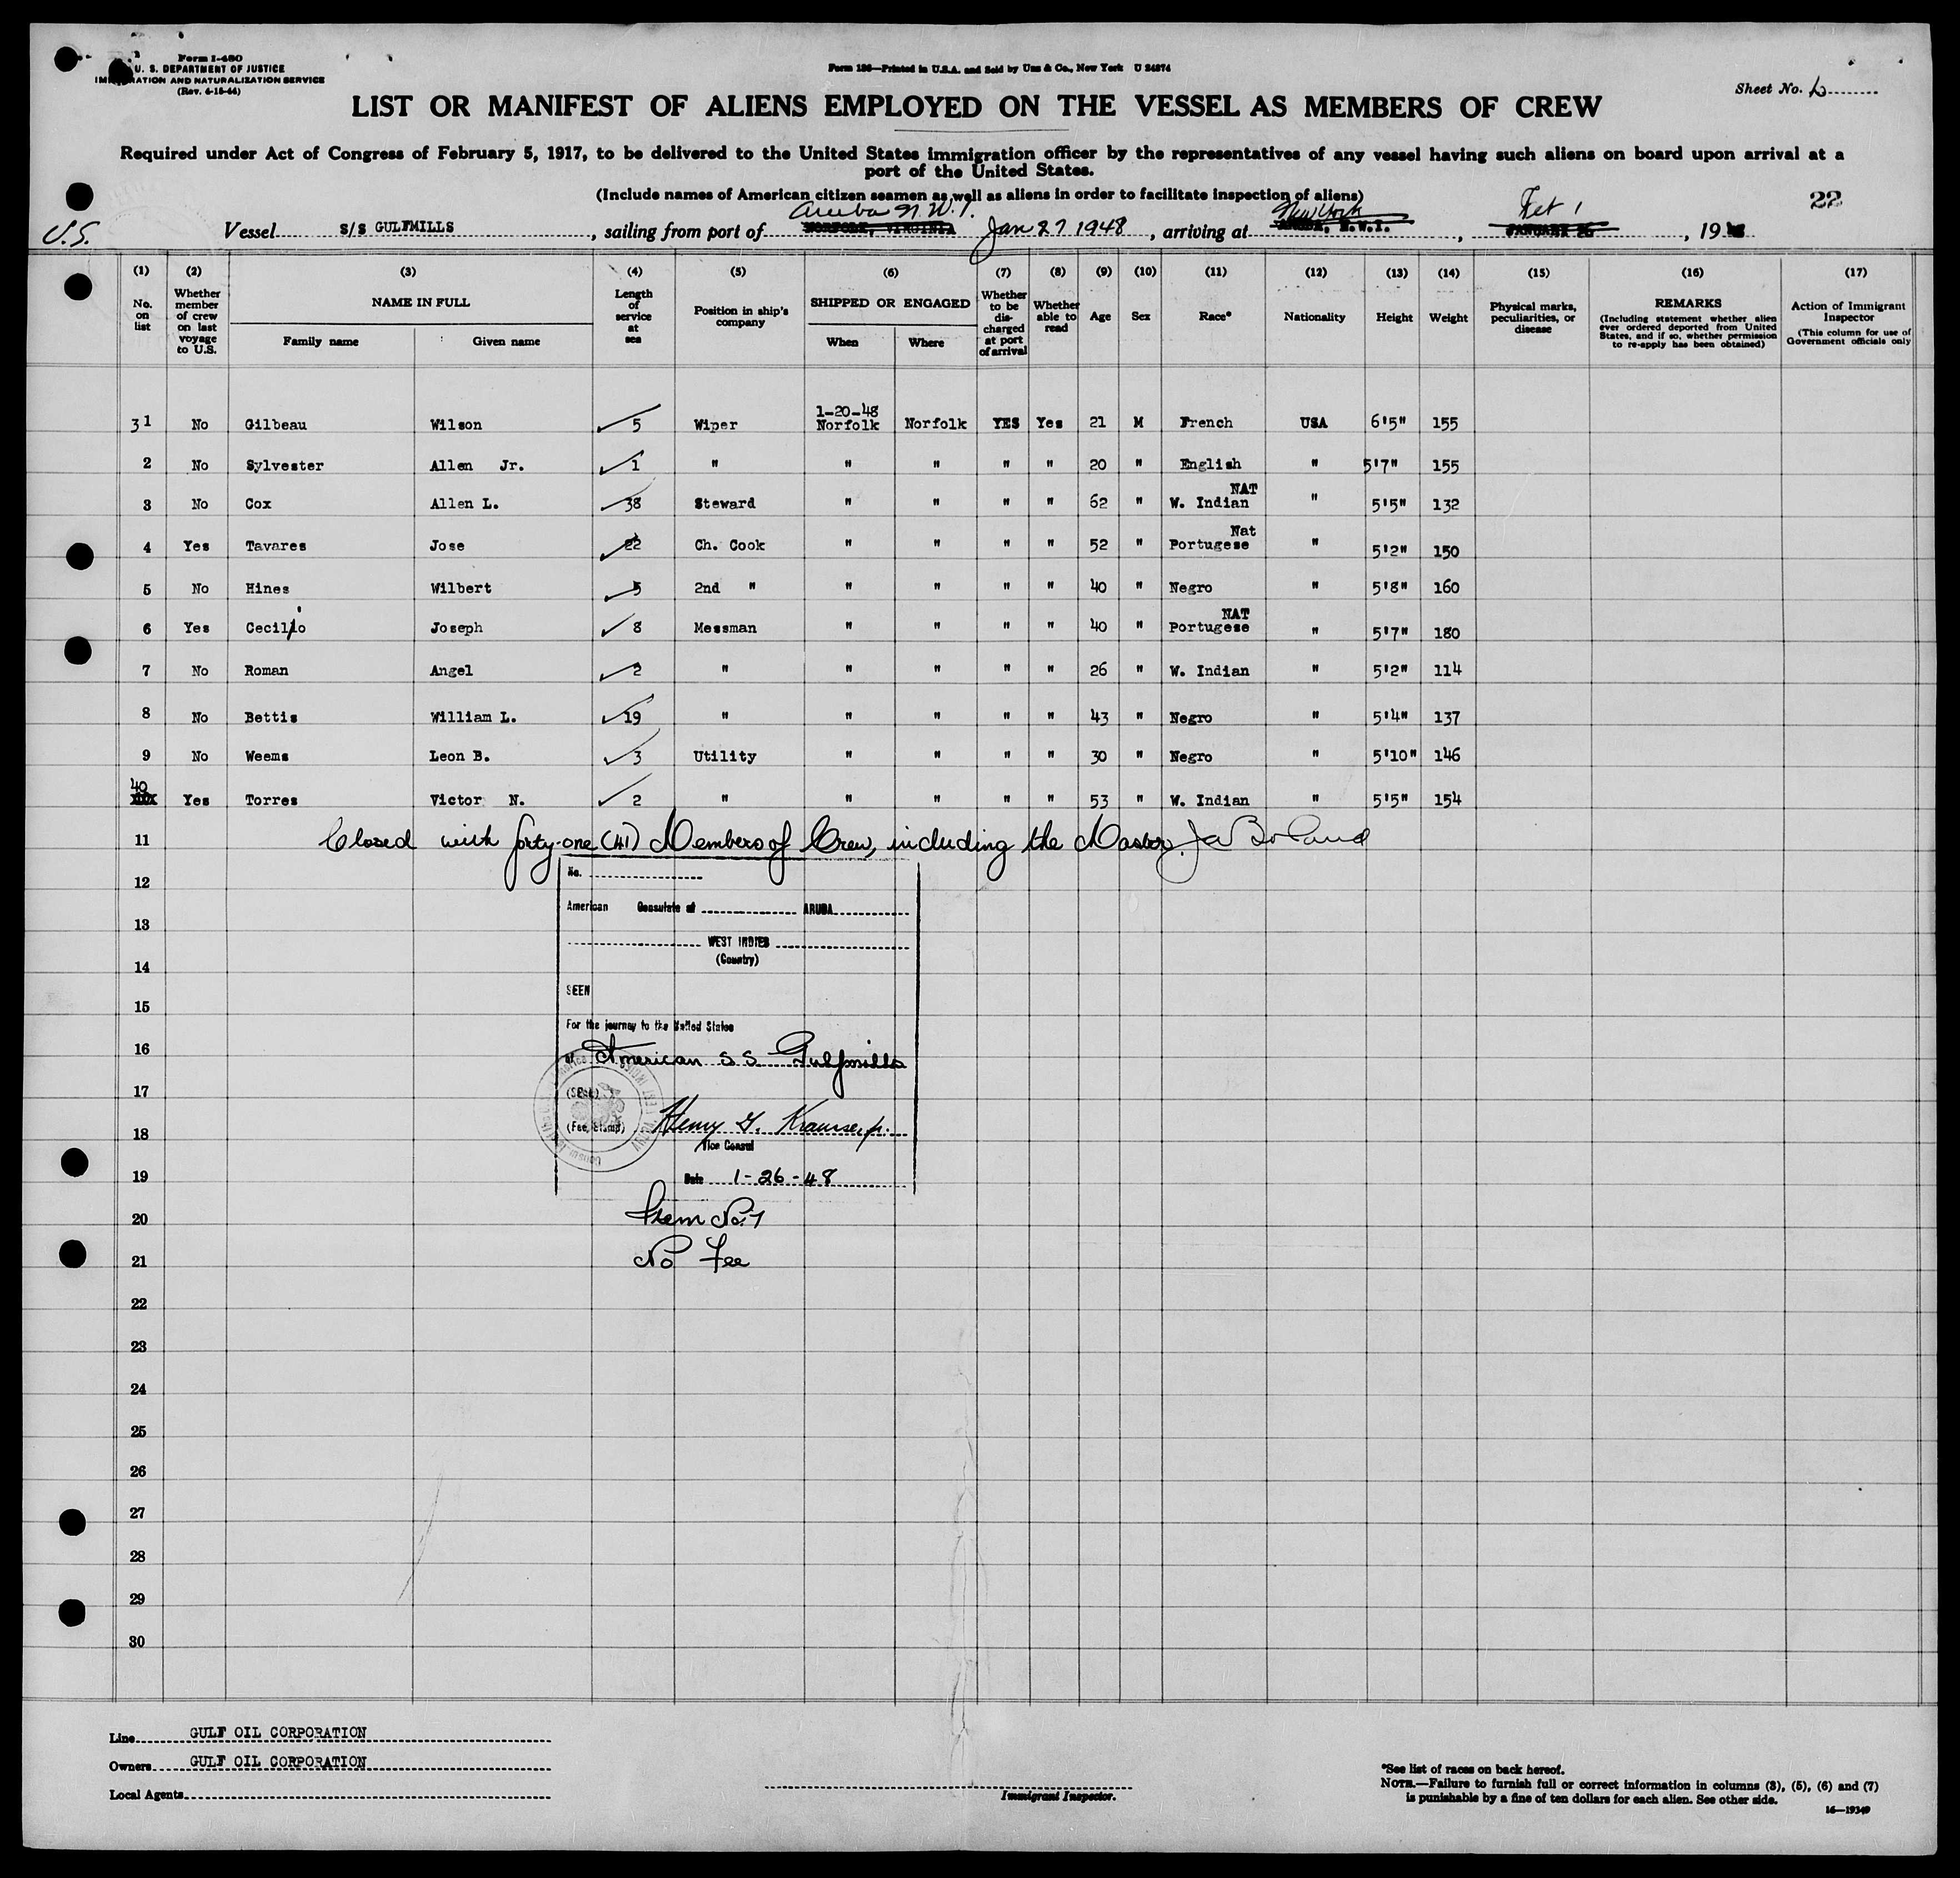 Form I-480
U. S. DEPARTMENT OF JUSTICE
IMMIGRATION AND NATURALIZATION SERVICE
(Rev. 4-15-44)
Form 186—Printed in U.S.A. and Sold by Unz & Co., New York U 24874
Sheet No.
LIST OR MANIFEST OF ALIENS EMPLOYED ON THE VESSEL AS MEMBERS OF CREW
Required under Act of Congress of February 5, 1917, to be delivered to the United States immigration officer by the representatives of any vessel having such aliens on board upon arrival at a
port of the United States.
(Include names of American citizen seamen as well as aliens in order to facilitate inspection of aliens)
22
Aruba N.W.I. New York Feb 1
U.S. Vessel S/S GULFMILLS, sailing from port of NORFOLK, VIRGINIA Jan 27 1948, arriving at ARUBA, N.W.I., JANUARY 26, 19
(1) (2) (3) (4) (5) (6) (7) (8) (9) (10) (11) (12) (13) (14) (15) (16) (17)
No. on list Whether member of crew on last voyage to U.S. NAME IN FULL Family name Given name Length of service at sea Position in ship's company SHIPPED OR ENGAGED When Where Whether to be discharged at port of arrival Whether able to read Age Sex Race* Nationality Height Weight Physical marks, peculiarities, or disease REMARKS (Including statement whether alien ever ordered deported from United States, and if so, whether permission to re-apply has been obtained) Action of Immigrant Inspector (This column for use of Government officials only
1-20-48
31 No Gilbeau Wilson 5 Wiper Norfolk Norfolk YES Yes 21 M French USA 6'5" 155
2 No Sylvester Allen Jr. 1 " " " " " 20 " English " 5'7" 155
NAT
3 No Cox Allen L. 38 Steward " " " " 62 " W. Indian " 5'5" 132
Nat
4 Yes Tavares Jose 22 Ch. Cook " " " " 52 " Portugese " 5'2" 150
5 No Hines Wilbert 5 2nd " " " " " 40 " Negro " 5'8" 160
NAT
6 Yes Cecilio Joseph 8 Messman " " " " 40 " Portugese " 5'7" 180
7 No Roman Angel 2 " " " " " 26 " W. Indian " 5'2" 114
8 No Bettis William L. 19 " " " " " 43 " Negro " 5'4" 137
9 No Weems Leon B. 3 Utility " " " " 30 " Negro " 5'10" 146
40 Yes Torres Victor N. 2 " " " " " 53 " W. Indian " 5'5" 154
11 Closed with forty-one (41) Members of Crew, including the Master.
12 No.
American Consulate at ARUBA
13
WEST INDIES
(Country)
14
SEEN
15
For the journey to the United States
16 American S.S. Gulfmills
17 (SEAL)
18 (Fee Stamp) Henry G. Krausse, jr.
Vice Consul
19 Date 1-26-48
20 Item No. 7
21 No Fee
22
23
24
25
26
27
28
29
30
Line GULF OIL CORPORATION
Owners GULF OIL CORPORATION
Local Agents
Immigrant Inspector.
*See list of races on back hereof.
NOTE.—Failure to furnish full or correct information in columns (3), (5), (6) and (7)
is punishable by a fine of ten dollars for each alien. See other side.
16—19349